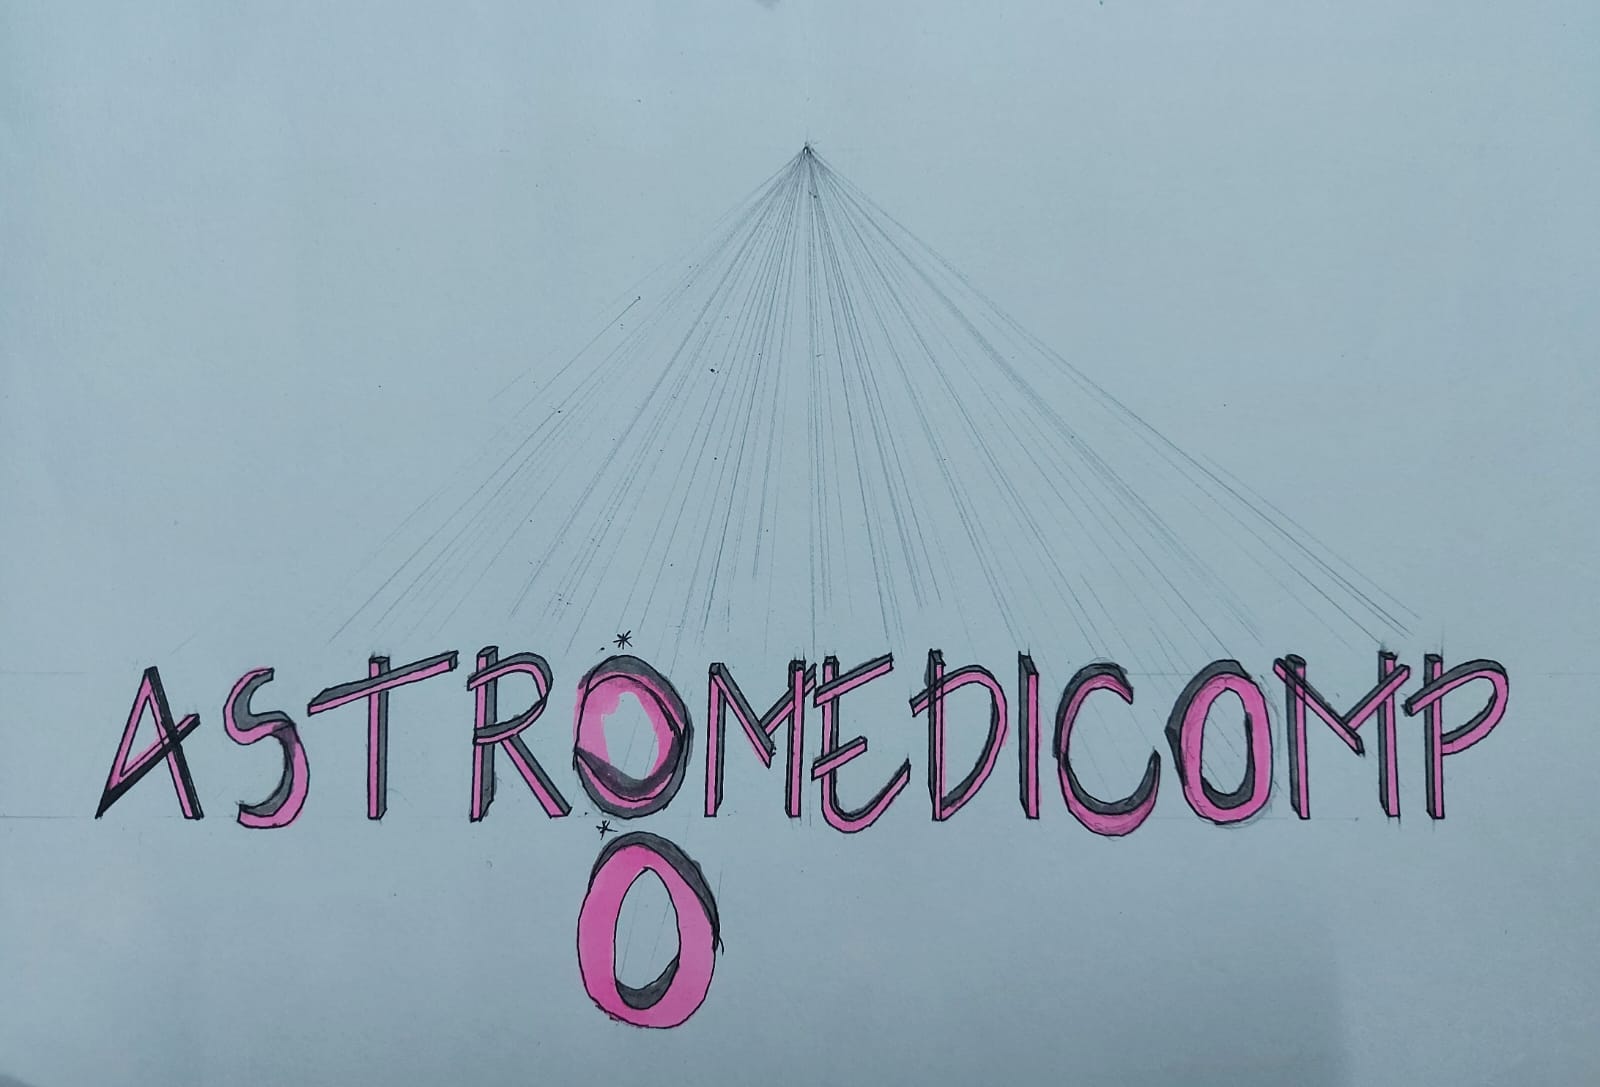 ASTRO*MEDICOMP
*O